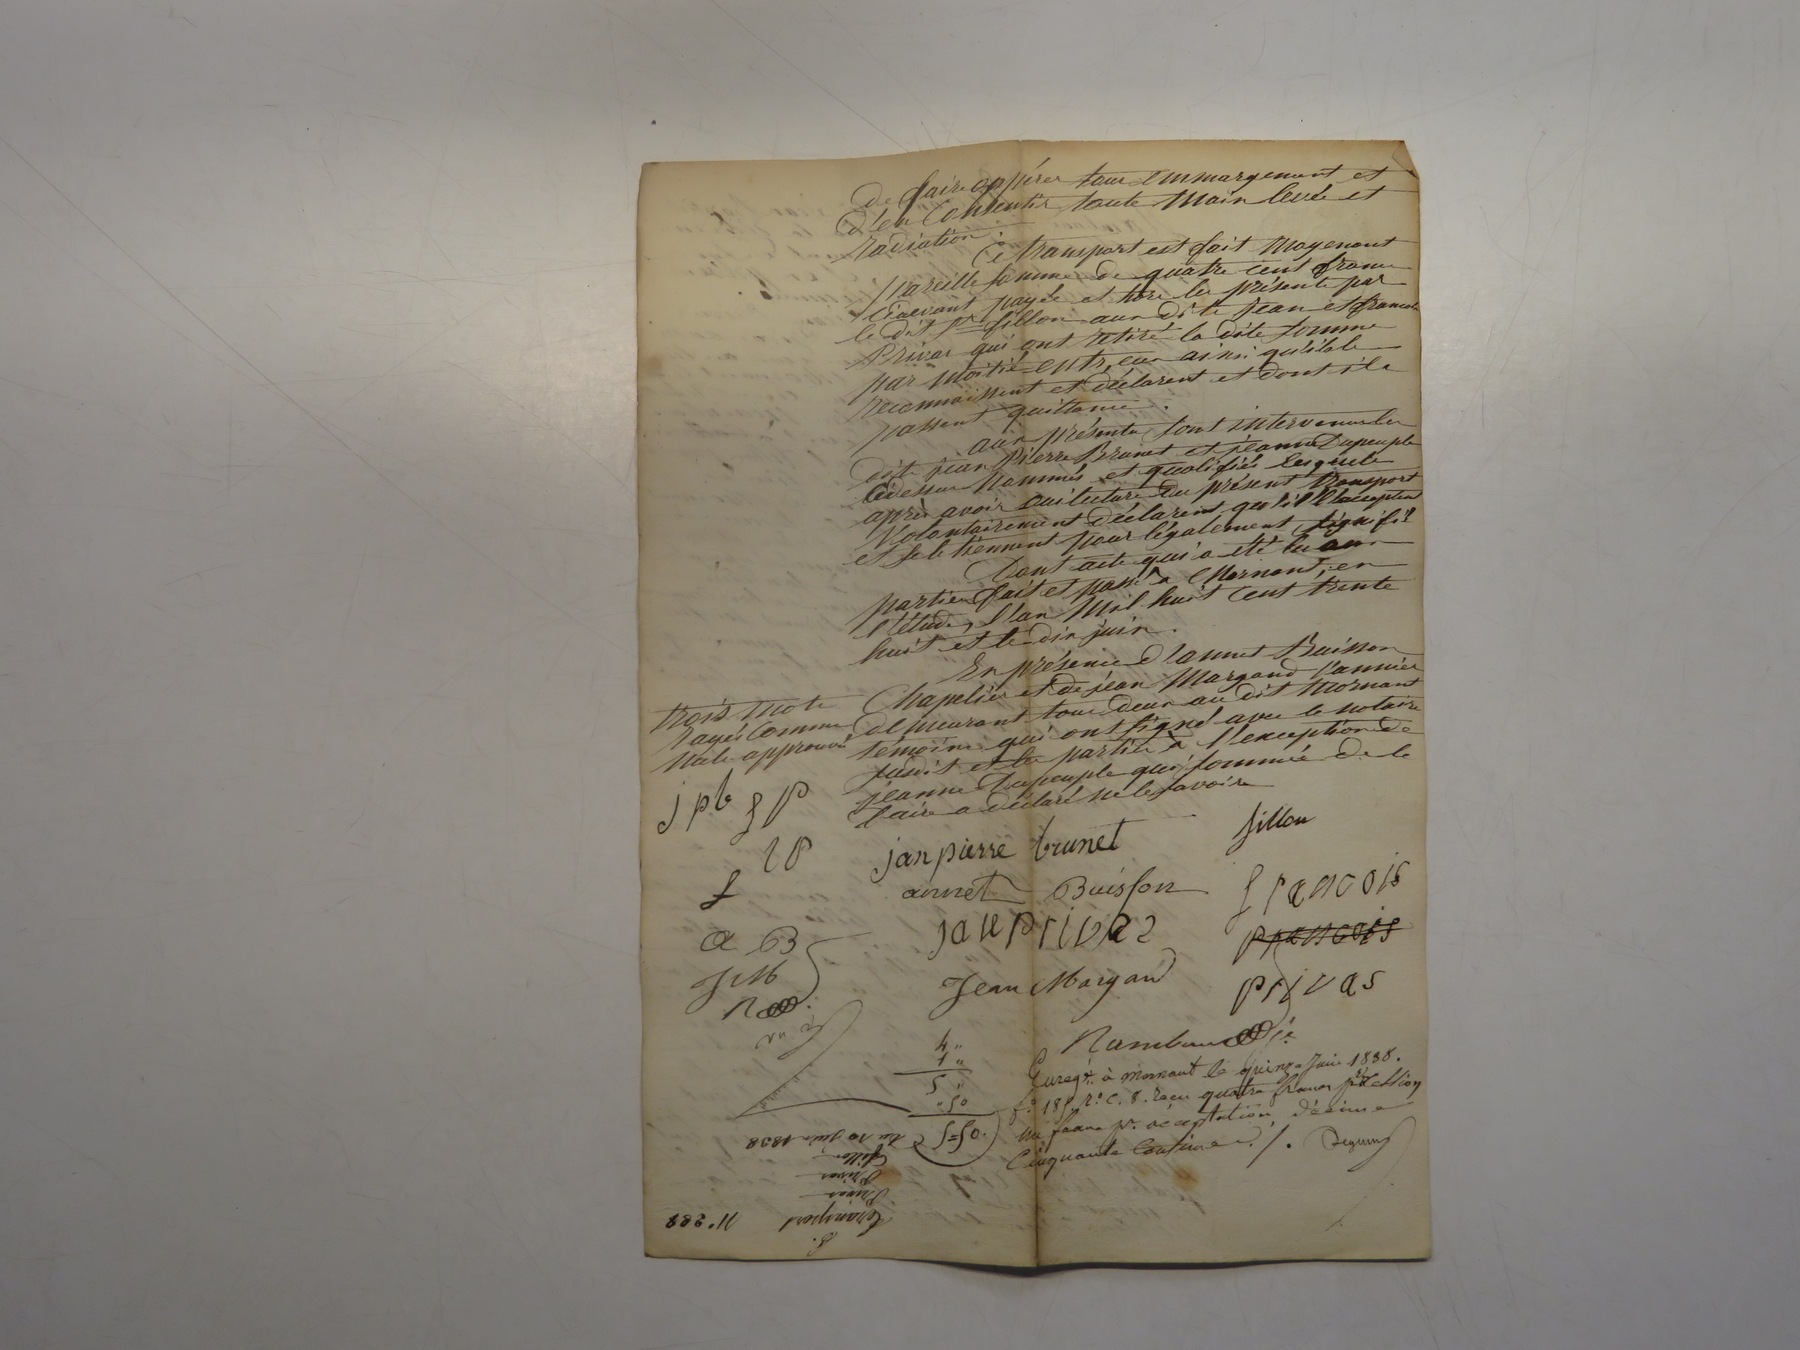 De faire oppérer tous Emmargement et
D'en Consentir toute Main levée et
radiation.
Ce transport est fait Moyenant
pareille somme de quatre cent francs
le dit Sr fillon aux dits Jean et francois
Privas qui ont retiré la dite somme
par moitié entr'eux ainsi qu'ils le
reconnaissent et déclarent et dont ils
passent quittance.
aux présentes sont intervenus les
dits jean Pierre Brunet et jeanne Dupeuple
Cidessus Nommés et qualifiés Lesquels
après avoir oui lecture du présent transport
Volontairement déclarent qu'ils l'acceptent
et se le tiennent pour légalement signifié
Dont acte qui a été lu aux
parties fait et passé a Mornant, en
l'étude, l'an Mil huit cent trente
huit et le dix juin.
En présence d'annet Buisson
Chapelier et de jean Margand Vannier
demeurant tous deux au dit Mornant
témoins qui ont signé avec le notaire
susdit et les parties à l'exception de
jeanne Dupeuple qui sommée de le
faire a déclaré ne le savoir
trois mots
rayés Comme
nuls approuvé
jpb fP
JP
f
a B
J M
R
jan pierre brunet
fillon
annet Buisson
francois
jan privas
francois
Jean Margand
privas
4 "
1 "
5 "
" 50
5=50.
Enregté à Mornant le quinze Juin 1838.
fo 185 Ro C. 8. reçu quatre francs pr cession
un franc pr. acceptation, décime
Cinquante Centimes ./.
N° 288
Transport
Privas
Privas
fillon
du 10 juin 1838